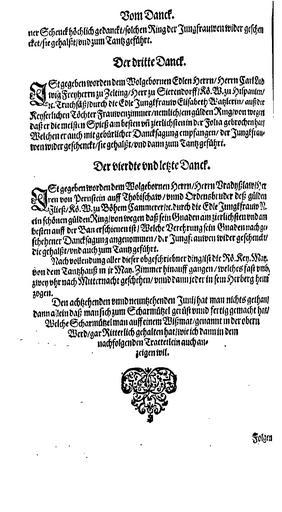 Vom Danck.
ner Schenck höchlich gedanckt/ solchen Ring der Jungfrauwen wider geschen
cket/ sie gehalßt/ vnd zum Tantz geführt.
Der dritte Danck.
Ist gegeben worden dem Wolgebornen Edlen Herrn/ Herrn Carl Lud
wig Freyherrn zu Zelting/ Herr zu Sierendorff/ Kö. W. zu Hispanien/
rc. Truchsäß/ durch die Edle Jungfrauw Elisabeth Watzlerin/ auß der
Keyserlichen Töchter Frawenzimmer/ nemlich/ ein gülden Ring/ von wegen
daß er die meisten Spieß am besten vn zierlichsten in der Folia gebrochen hat/
Welchen er auch mit gebürlicher Dancksagung empfangen/ der Jungfrau-
wen wider geschenckt/ sie gehalßt/ vnd zum Tantz geführt.
Der vierdte vnd letzte Danck.
Ist gegeben worden dem Wolgebornen Herrn/ Herrn Vratzißlaw Her
ren von Pernstein auff Thobischaw/ vnnd Ordensbruder deß gülden
Fließ/ Kö. W. zu Böhem Cammerer rc. durch die Edle Jungkfrauw N.
ein schönen gülden Ring/ von wegen daß sein Gnaden am zierlichsten vnd am
besten auff der Ban erschienen ist/ Welche Verehrung sein Gnaden nach ge-
schehener Dancksagung angenommen/ der Jungfrauwen wider geschenckt/
die gehalßt/ vnd auch zum Tantz geführt.
Nach vollendung aller dieser obgeschriebener ding/ ist die Rö. Key. May.
von dem Tantzhauß in jr May. Zimmer hinauff gangen/ welches fast vmb
zwey vhr nach Mitternacht geschehen/ vnnd dann jeder in sein Herberg heim
zogen.
Den achtzehenden vnnd neuntzehenden Junij hat man nichts gethan/
dann allein daß man sich zum Scharmützel gerüst vnnd fertig gemacht hat/
Welche Scharmützel man auff einem Wißmat/ genannt in der obern
Werd/ gar Ritterlich gehalten hat/ wie ich dann in dem
nachfolgenden Tractetlein auch an-
zeigen wil.
Folgen